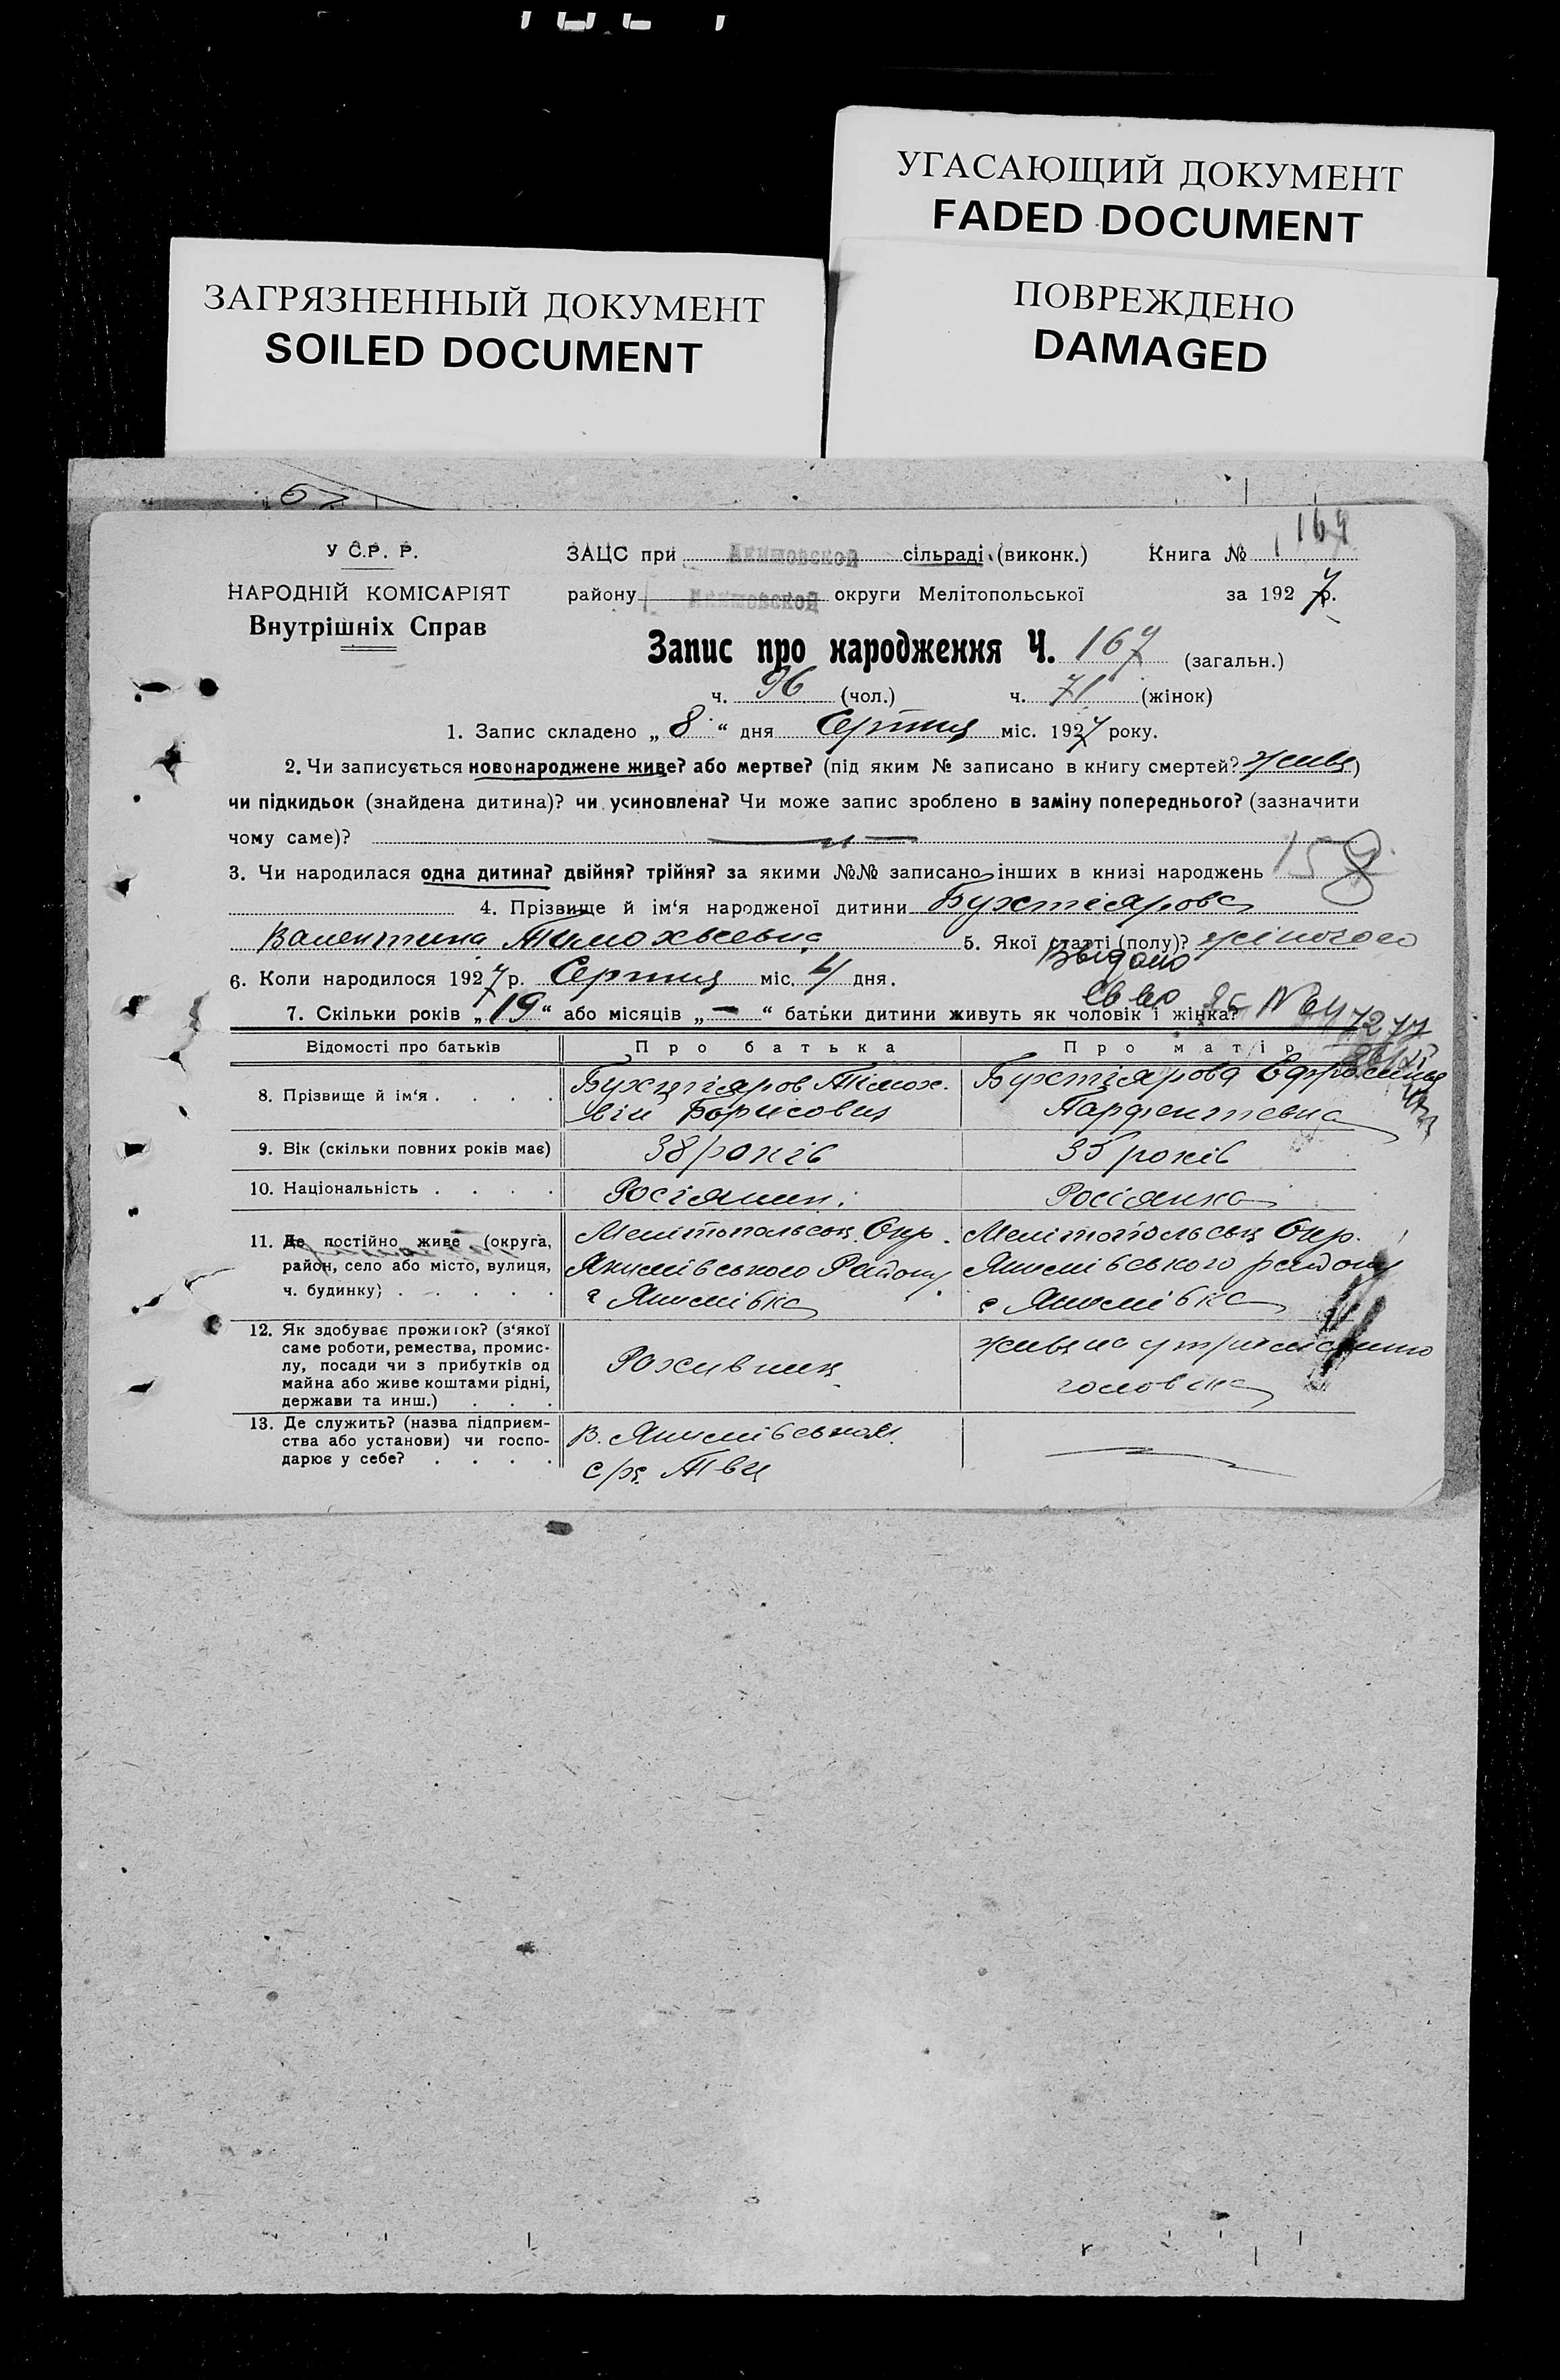 УГАСАЮЩИЙ ДОКУМЕНТ
FADED DOCUMENT
ЗАГРЯЗНЕННЫЙ ДОКУМЕНТ
SOILED DOCUMENT
ПОВРЕЖДЕНО
DAMAGED
У С.Р. Р.
НАРОДНІЙ КОМІСАРІЯТ
Внутрішніх Справ
ЗАЦС при Акимовской сільраді (виконк.) Книга № 167
району Акимовской округи Мелітопольської за 1927 р.
Запис про народження Ч. 167 (загальн.)
ч. 96 (чол.) ч. 71 (жінок)
1. Запис складено „ 8 “ дня Серпня міс. 1927 року.
2. Чи записується новонароджене живе? або мертве? (під яким № записано в книгу смертей? живе)
чи підкидьок (знайдена дитина)? чи усиновлена? Чи може запис зроблено в заміну попереднього? (зазначити
чому саме)? — „ —
3. Чи народилася одна дитина? двійня? трійня? за якими №№ записано інших в книзі народжень 158
4. Прізвище й ім‘я народженої дитини Бухтіярова
Валентина Тимохвеевна 5. Якої статті (полу)? жіночого
Видано
6. Коли народилося 1927 р. Серпня міс. 4 дня.
7. Скільки років „ 19 “ або місяців „ — “ батьки дитини живуть як чоловік і жінка?
Відомості про батьків Про батька Про матір
8. Прізвище й ім‘я . . . . Бухтіяров Тімох- Бухтіярова Ефросинія
вій Борисович Парфентевна
9. Вік (скільки повних років має) 38 років 35 років
10. Національність . . . . Росіянин. Росіянка
11. Де постійно живе (округа, Мелітопольськ. Окр. Мелітопольськ Окр.
район, село або місто, вулиця, Якимівського Району Якимівського району
ч. будинку) . . . . . с Якимівка с Якимівка
12. Як здобуває прожиток? (з‘якої
саме роботи, ремества, промис-
лу, посади чи з прибутків од Рахивник живе на утриманню
майна або живе коштами рідні, чоловіка
держави та инш.) . . .
13. Де служить? (назва підприєм- В. Якимівськом
ства або установи) чи госпо-
дарює у себе? . . . . с/г. Т-ві —